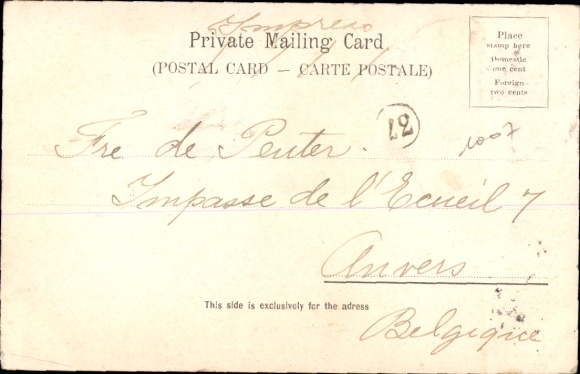 Impreso
Private Mailing Card
(POSTAL CARD — CARTE POSTALE)
Place
stamp here
Domestic
one cent
Foreign
two cents
37
1007
Fre. de Peuter.
Impasse de l'Ecueil 7
Anvers
This side is exclusively for the adress
Belgique